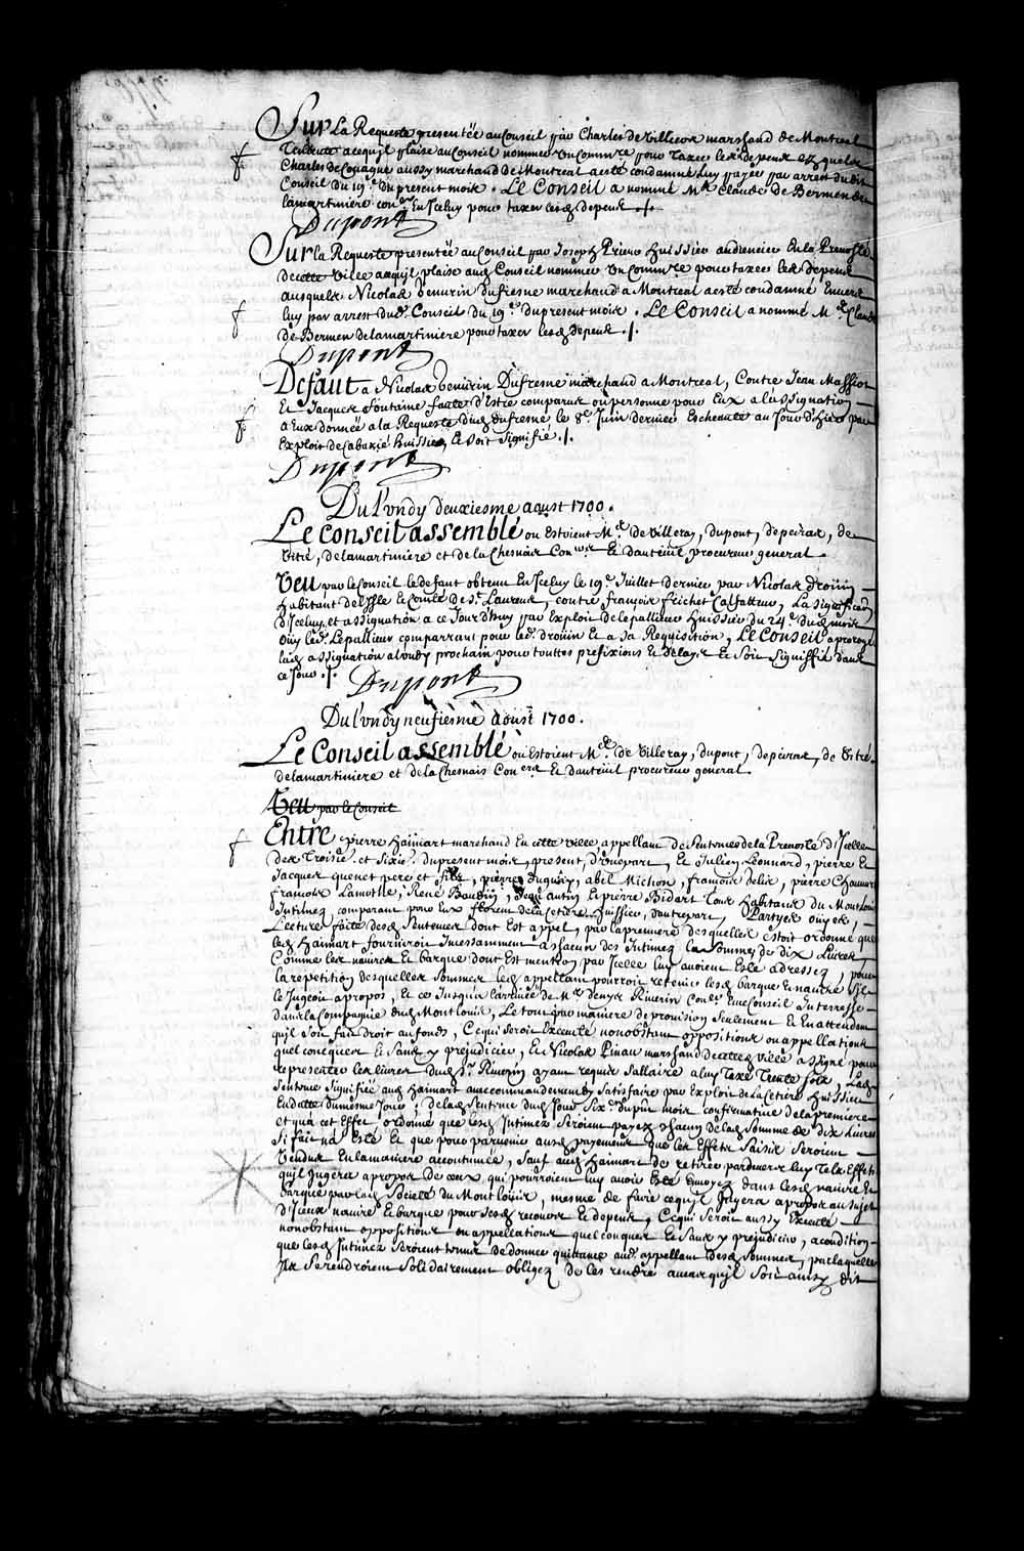 Sur La Requeste presentée au Conseil par Charles de Villiers marchand de Montreal
Tendante acequ'il plaise au Conseil nommer Un Comm.re pour Taxer les depens esquels
Charles de Couagne aussy marchand de Montreal a esté condamné luy payer par arrest dudit
Conseil du 19.e du present mois. Le Conseil a nommé M.e Claude de Bermen de
lamartiniere con.er En Iceluy pour taxer lesd depens ./.
Dupont
Sur la Requeste presentée au Conseil par Joseph Prieur huissier audiencier En la Prevosté
de cette Ville aceqy'il plaise aud Conseil nommer Un Comm.re pour taxer les depens
ausquels Nicolas Benurin dufresne marchand a Montreal a esté condamné Envers
luy par arrest dud. Conseil du 19.e du present mois. Le Conseil a nommé M.e Claude
de Bermen de lamartiniere pour taxer lesd depens ./.
Dupont
Defaut a Nicolas Benurin Dufresne marchand a Montreal, Contre Jean Massiot
Et Jacques fontaine faute d'Estre comparus ou personne pour Eux a l'assignation
a Eux donnée a la Requeste dud dufresne le 8.e Juin dernier Escheante au Jour d'hier par
Exploit de Cabazié huissier, Et soit signifié ./.
Dupont
Du Lundy deuxiesme aoust 1700.
Le Conseil assemblé ou Estoient M.rs de Villeray, dupont, depeiras, de
Vitré, de lamartiniere et de la Chesnais Con.ers Et dauteüil procureur general.
Veu par le Conseil le defaut obtenu En Iceluy le 19.e Juillet dernier par Nicolas Droüin
habitant de l'Isle Et Comté de S.t Laurens, contre françois frichet Calfatteur, La signification
d'Iceluy et assignation a ce Jour d'huy par Exploit de Lepallieur huissier du 24.e dud mois
Ouy led. Lepallieur comparrant pour led. droüin Et a sa Requisition, Le Conseil a prorogé
lad assignation a lundy prochain pour touttes prefixions Et delays Et soit signiffié dans
ce Jour ./.
Dupont
Du Lundy neufiesme Aoust 1700.
Le Conseil assemblé où Estoient M.rs de Villeray, dupont, depeiras, de Vitré
de lamartiniere et de la Chesnais Con.ers Et dauteüil procureur general.
Veu par le Conseil
Entre pierre haimart marchand En cette Ville appellant de Sentences de la Prevosté d'Icelle
des Troisie. et Sixie. du present mois, present, d'Une part, Et Julien Leonnard, pierre Et
Jacques quenet pere et fils, pierre Duquay, abel Michon, françois Delix, pierre Chamare
françois Lamotte, René Baudin, antin Et pierre Bidart Tous habitans du Montloüis
Intimez comparant pour Eux florent de la Cetiere huissier, dautre part, Partyes ouyes,
Lecture faite desd Sentences dont Est appel, par la premiere desquelles estoit ordonné que
led haimart fourniroit Incessamment a chacun des Intimez la Somme de dix Livres,
Comme les navires Et barque dont Est mention par Icelle luy avoient Esté adressez, pour
la repetition desquelles Sommes led appellant pourroit retenir lesd barque Et navire s'il
le Jugeoit apropos, Et ce Jusqu'a larrivée de M.e denys Riverin Con.er Une Conseil Interressé
dans la Compagnie dud Mont Louis, Le tout par maniere de provision Seulement Et En attendant
qu'il soit fait droit au fonds, Ce qui seroit Executé nonobstant oppositions ou appellations
quelconques Et Sans y prejudicier, Et Nicolas Pinau marchand de cette ville assigné pour
representer les livres dud S.r Riverin ayant requis Sallaire a luy Taxé Trente sols, Lad
Sentence Signifiée aud haimart avec commandement y satisfaire par Exploit de La Cetiere huissier
En datte du mesme Jour; de lad Sentence dud Jour Six.e du pnt mois confirmative de la premiere
et qu'a cet Effet ordonné que lesd Intimez seroient payez chacun de lad Somme de dix Livres
Si fait n'a Esté Et que pour parvenir ausd payemens que les Effets Saisis seroient
Vendus En la maniere accoutumée, Sauf aud haimart de retirer pardevers luy Tels Effets
qu'il Jugera apropos de ceux qui pourroient luy avoir Esté Envoyez dans lesd navire Et
Barque par lad Societé du Mont Loüis, mesme de faire ce qu'il Jugera apropos au sujet
d'Iceux navire Et barque pour sesd recours Et depens, Ce qui seroit aussy Executé
nonobstant oppositions ou appellations quelconques Et Sans y prejudicier, a condition
que lesd Intimez seroient tenus de donner quittance aud. appellant desd Sommes, par laquelle
Ils se rendroient solidairement obligez de les rendre au cas qu'il soit ainsy dit